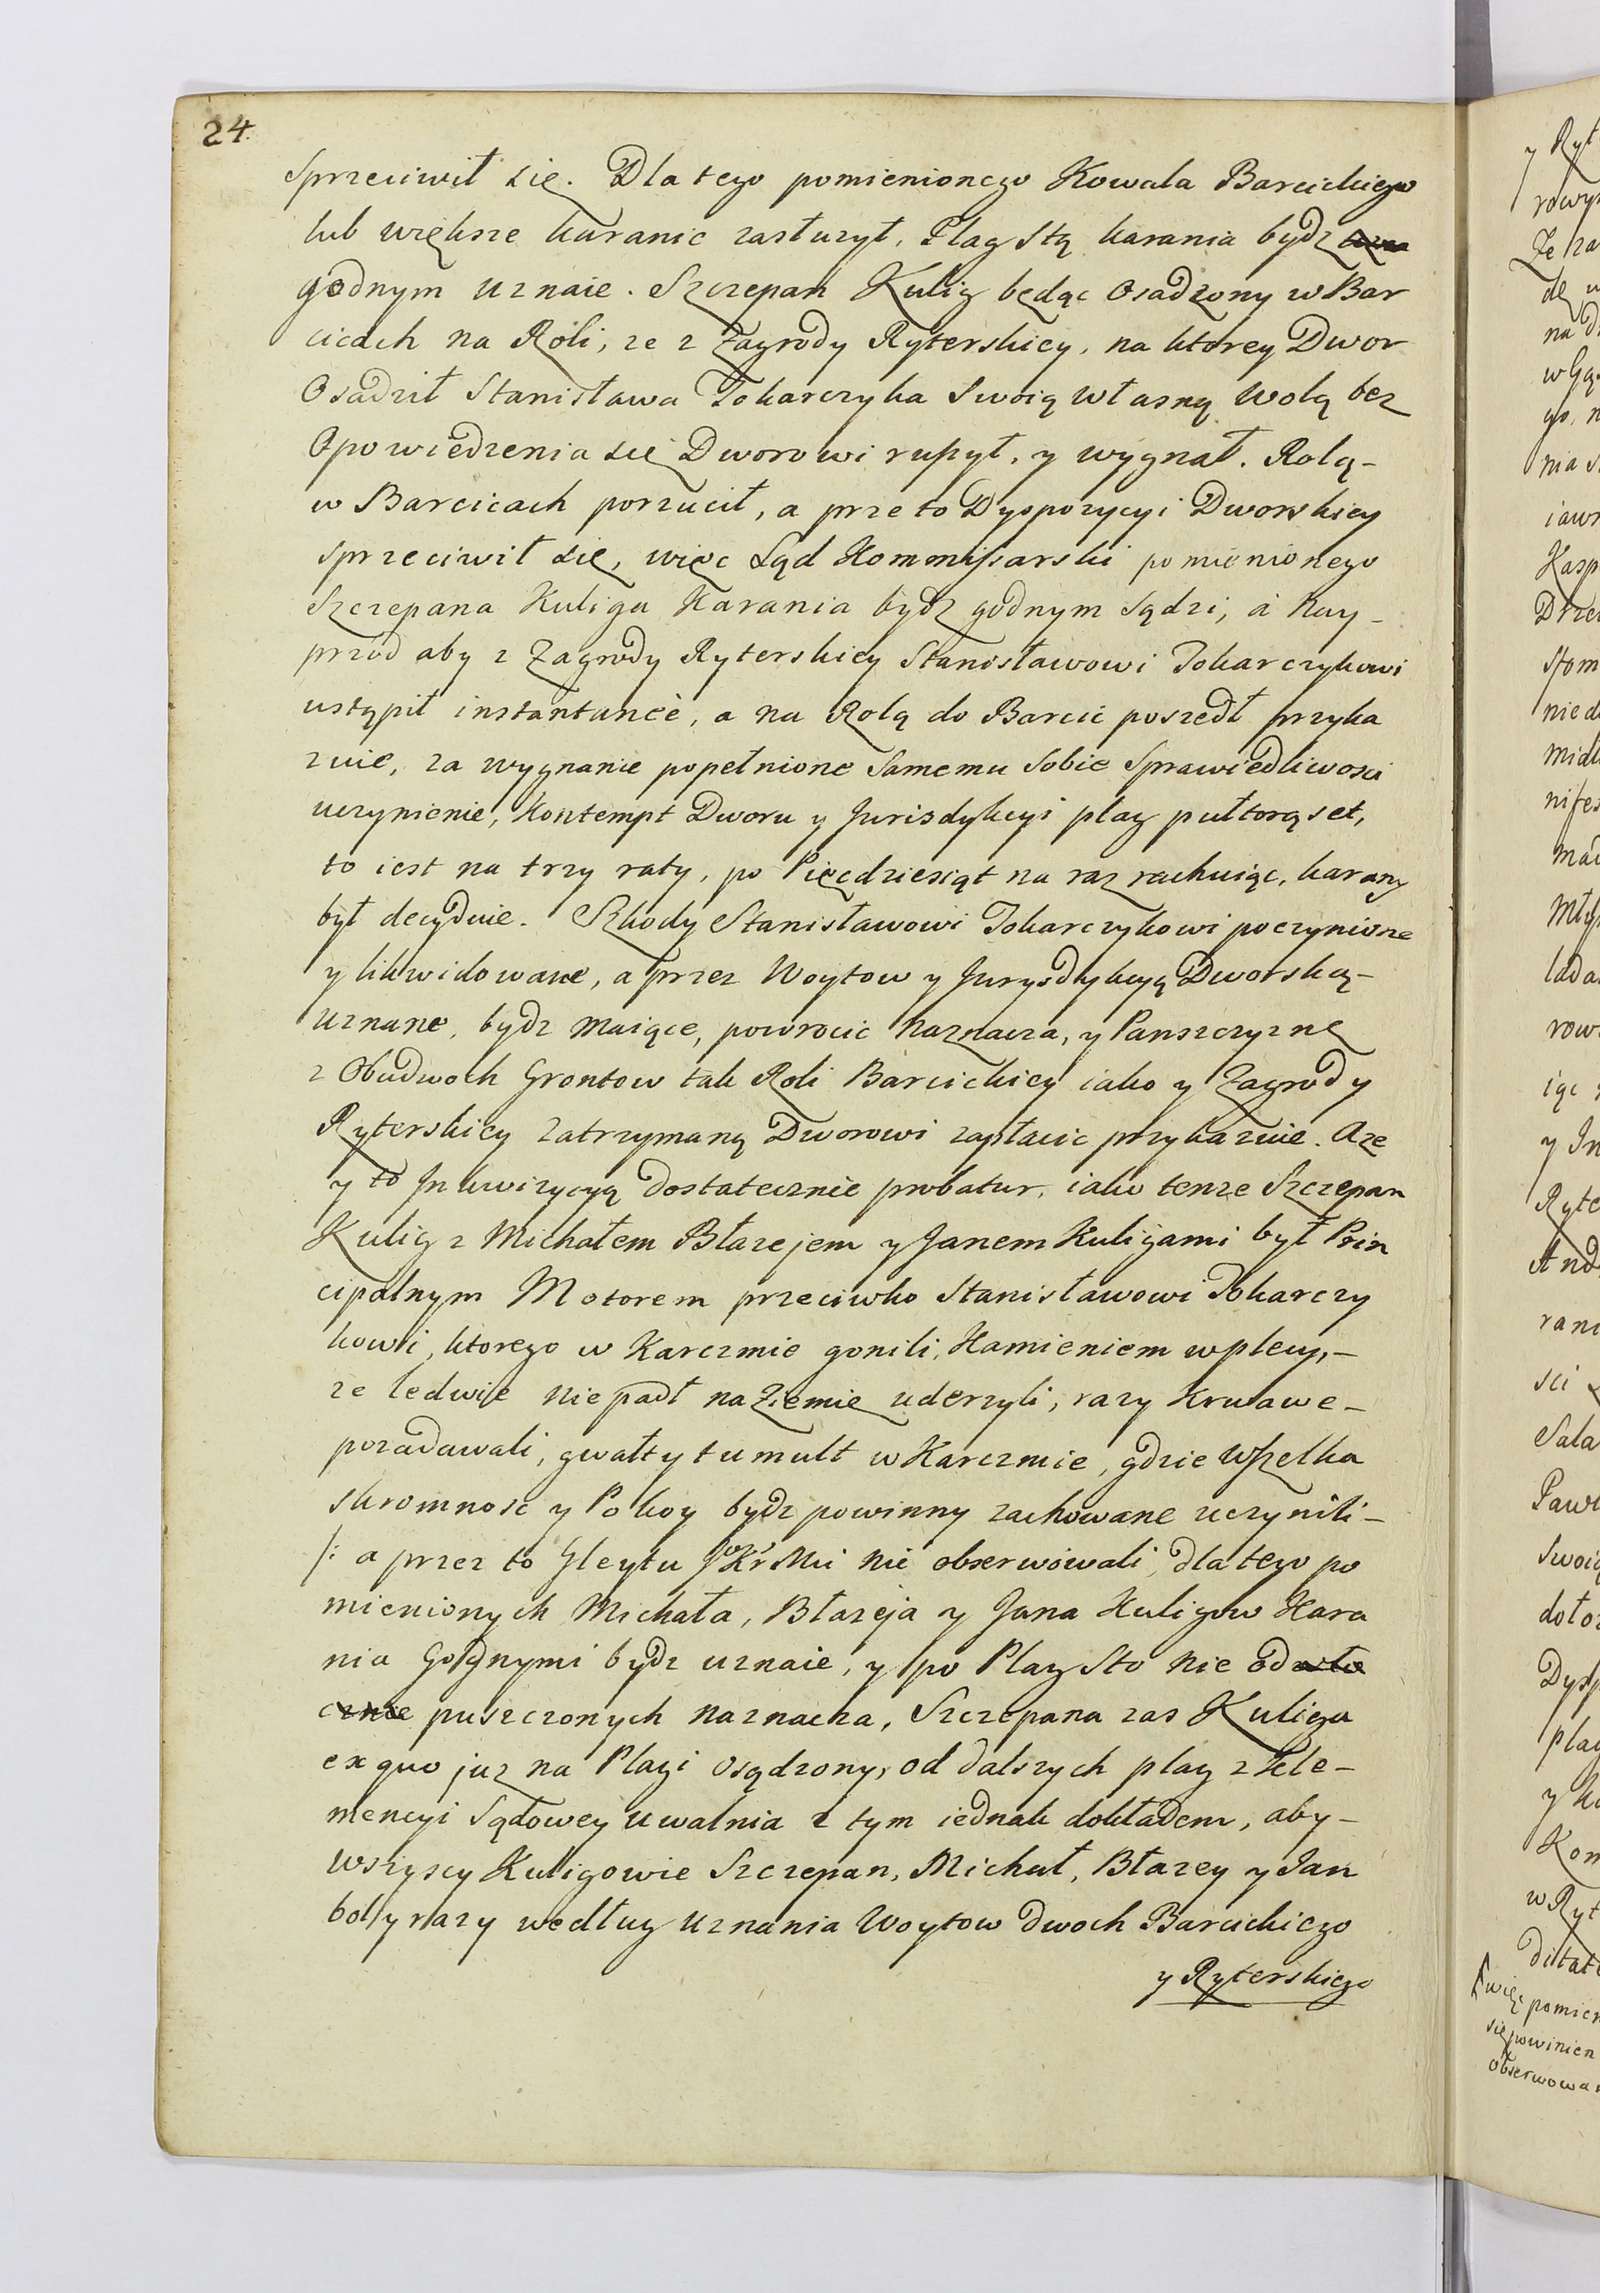 24.
Sprzeciwił się. Dla tego pomienionego Kowala Barcickiego
lub większe karanie zasłużył, Plag Stą karania bydz
godnym uznaie. Szczepan Kulig będąc Osadzony w Bar
cicach na Roli, ze z Zagrody Ryterskiey, na ktorey Dwor
Osadził Stanisława Tokarczyka Swoią własną wolą bez
Opowiedzenia się Dworowi ruszył, y wygnał. Rolą-
w Barcicach porzucił, a prze to Dyspozycyi Dworskiey
sprzeciwił się, więc Sąd Kommissarski pomienionego
Szczepana Kuliga Karania bydz godnym Sądzi, a nay-
przod aby z Zagrody Ryterskiey Stanisławowi Tokarczykowi
ustąpił instantaneè, a na Rolą do Barcic poszedł przyka
zuie, za wygnanie popełnione Samemu Sobie Sprawiedliwosci
uczynienie, Kontempt Dworu y Jurisdykcyi plag pułtorąset,
to iest na trzy raty, po Pięcdziesiąt na raz rachuiąc, karany
był decyduie. Szkody Stanisławowi Tokarczykowi poczynione
y likwidowane, a przez Woytow y Jurysdykcyą Dworską-
uznane, bydz maiące, powrocic naznacza, y Panszczyznę
z Obudwoch Grontow tak Roli Barcickiey iako y Zagrody
Ryterskiey zatrzymaną Dworowi zapłacic przykazuie. Aze
y to Inkwizycyą dostatecznie probatur, iako tenze Szczepan
Kulig z Michałem Błazejem y Janem Kuligami był Prin
cipalnym Motorem przeciwko Stanisławowi Tokarczy
kowi, ktorego w Karczmie gonili, Kamieniem w plecy,-
ze ledwie nie padł na Ziemię uderzyli, razy Krwawe-
pozadawali, gwałt y tumult w Karczmie, gdzie wszelka
skromnosc y Pokoy bydz powinny zachowane uczynili-
/: a przez to Gleytu JKr Mci nie obserwowali, dla tego po
mienionych Michała, Błazeja y Jana Kuligow Kara
nia Godnymi bydz uznaie, y po Plag Sto nie od
puszczonych naznacza, Szczepana zas Kuliga
ex quo juz na Plagi osądzony, od dalszych plag z Kle-
mencyi Sądowey uwalnia z tym iednak dokładem, aby-
wszyscy Kuligowie Szczepan, Michał, Błazey y Jan
bol y razy według uznania Woytow dwoch Barcickiego
y Ryterskiego